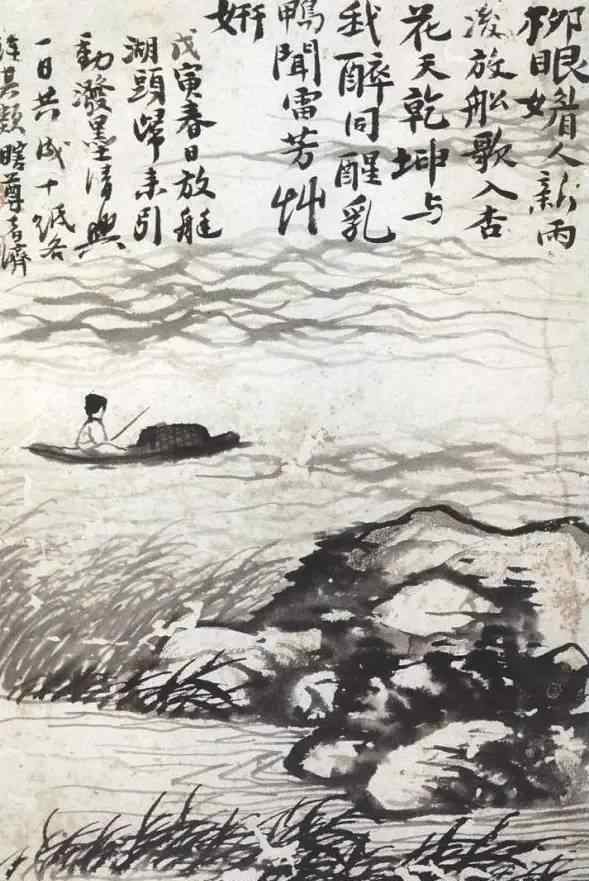 柳眼媚人新雨
後放舩歌入杏
花天乾坤与
我醉同醒乳
鴨聞雷芳艸
妍
戊寅春日放艇
湖頭歸来引
動潑墨清興
一日共成十紙各
其顛瞎尊者濟